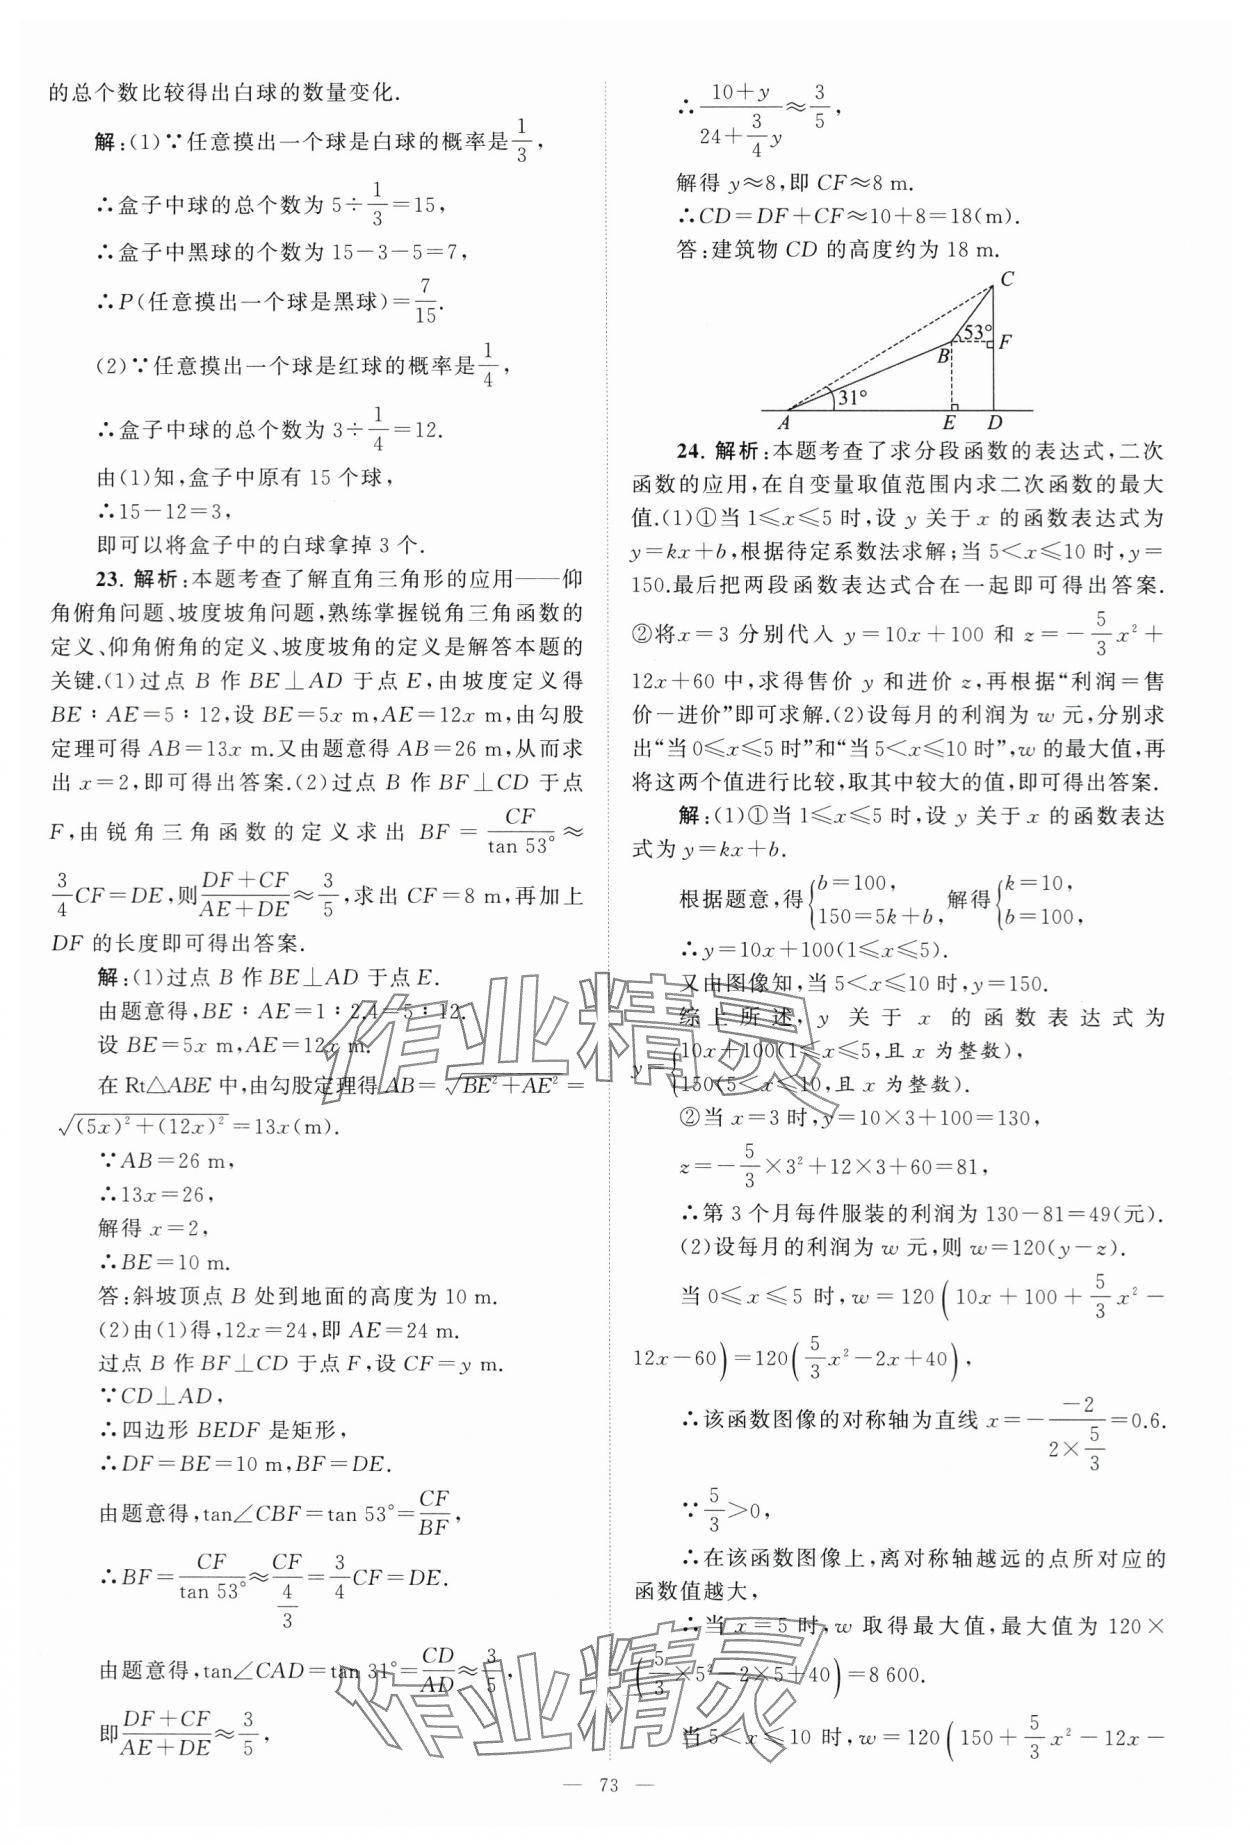 的总个数比较得出白球的数量变化.
解:(1)∵任意摸出一个球是白球的概率是1/3,
∴盒子中球的总个数为 5÷1/3=15,
∴盒子中黑球的个数为 15-3-5=7,
∴P(任意摸出一个球是黑球)=7/15.
(2)∵任意摸出一个球是红球的概率是1/4,
∴盒子中球的总个数为 3÷1/4=12.
由(1)知,盒子中原有 15 个球,
∴15-12=3,
即可以将盒子中的白球拿掉 3 个.
23. 解析:本题考查了解直角三角形的应用——仰
角俯角问题、坡度坡角问题,熟练掌握锐角三角函数的
定义、仰角俯角的定义、坡度坡角的定义是解答本题的
关键.(1)过点 B 作 BE⊥AD 于点 E,由坡度定义得
BE∶AE=5∶12,设 BE=5x m,AE=12x m,由勾股
定理可得 AB=13x m.又由题意得 AB=26 m,从而求
出 x=2,即可得出答案.(2)过点 B 作 BF⊥CD 于点
F,由锐角三角函数的定义求出 BF=CF/tan 53°≈
3/4CF=DE,则(DF+CF)/(AE+DE)≈3/5,求出 CF=8 m,再加上
DF 的长度即可得出答案.
解:(1)过点 B 作 BE⊥AD 于点 E.
由题意得,BE∶AE=1∶2.4=5∶12.
设 BE=5x m,AE=12x m.
在 Rt△ABE 中,由勾股定理得 AB=√(BE²+AE²)=
√((5x)²+(12x)²)=13x(m).
∵AB=26 m,
∴13x=26,
解得 x=2,
∴BE=10 m.
答:斜坡顶点 B 处到地面的高度为 10 m.
(2)由(1)得,12x=24,即 AE=24 m.
过点 B 作 BF⊥CD 于点 F,设 CF=y m.
∵CD⊥AD,
∴四边形 BEDF 是矩形,
∴DF=BE=10 m,BF=DE.
由题意得,tan∠CBF=tan 53°=CF/BF,
∴BF=CF/tan 53°≈CF/(4/3)=3/4CF=DE.
由题意得,tan∠CAD=tan 31°=CD/AD≈3/5,
即(DF+CF)/(AE+DE)≈3/5,
∴(10+y)/(24+3/4y)≈3/5,
解得 y≈8,即 CF≈8 m.
∴CD=DF+CF≈10+8=18(m).
答:建筑物 CD 的高度约为 18 m.
C
53°
F
B
31°
A E D
24. 解析:本题考查了求分段函数的表达式,二次
函数的应用,在自变量取值范围内求二次函数的最大
值.(1)①当 1≤x≤5 时,设 y 关于 x 的函数表达式为
y=kx+b,根据待定系数法求解;当 5<x≤10 时,y=
150.最后把两段函数表达式合在一起即可得出答案.
②将x=3 分别代入 y=10x+100 和 z=-5/3x²+
12x+60 中,求得售价 y 和进价 z,再根据“利润=售
价-进价”即可求解.(2)设每月的利润为 w 元,分别求
出“当 0≤x≤5 时”和“当 5<x≤10 时”,w 的最大值,再
将这两个值进行比较,取其中较大的值,即可得出答案.
解:(1)①当 1≤x≤5 时,设 y 关于 x 的函数表达
式为 y=kx+b.
根据题意,得{b=100, 150=5k+b, 解得{k=10, b=100,
∴y=10x+100(1≤x≤5).
又由图像知,当 5<x≤10 时,y=150.
综上所述,y 关于 x 的函数表达式为
y={10x+100(1≤x≤5,且 x 为整数),
150(5<x≤10,且 x 为整数).
②当 x=3 时,y=10×3+100=130,
z=-5/3×3²+12×3+60=81,
∴第 3 个月每件服装的利润为 130-81=49(元).
(2)设每月的利润为 w 元,则 w=120(y-z).
当 0≤x≤5 时,w=120(10x+100+5/3x²-
12x-60)=120(5/3x²-2x+40),
∴该函数图像的对称轴为直线 x=-(-2)/(2×5/3)=0.6.
∵5/3>0,
∴在该函数图像上,离对称轴越远的点所对应的
函数值越大,
∴当 x=5 时,w 取得最大值,最大值为 120×
(5/3×5²-2×5+40)=8 600.
当 5<x≤10 时,w=120(150+5/3x²-12x-
— 73 —
作业精灵
作业精灵